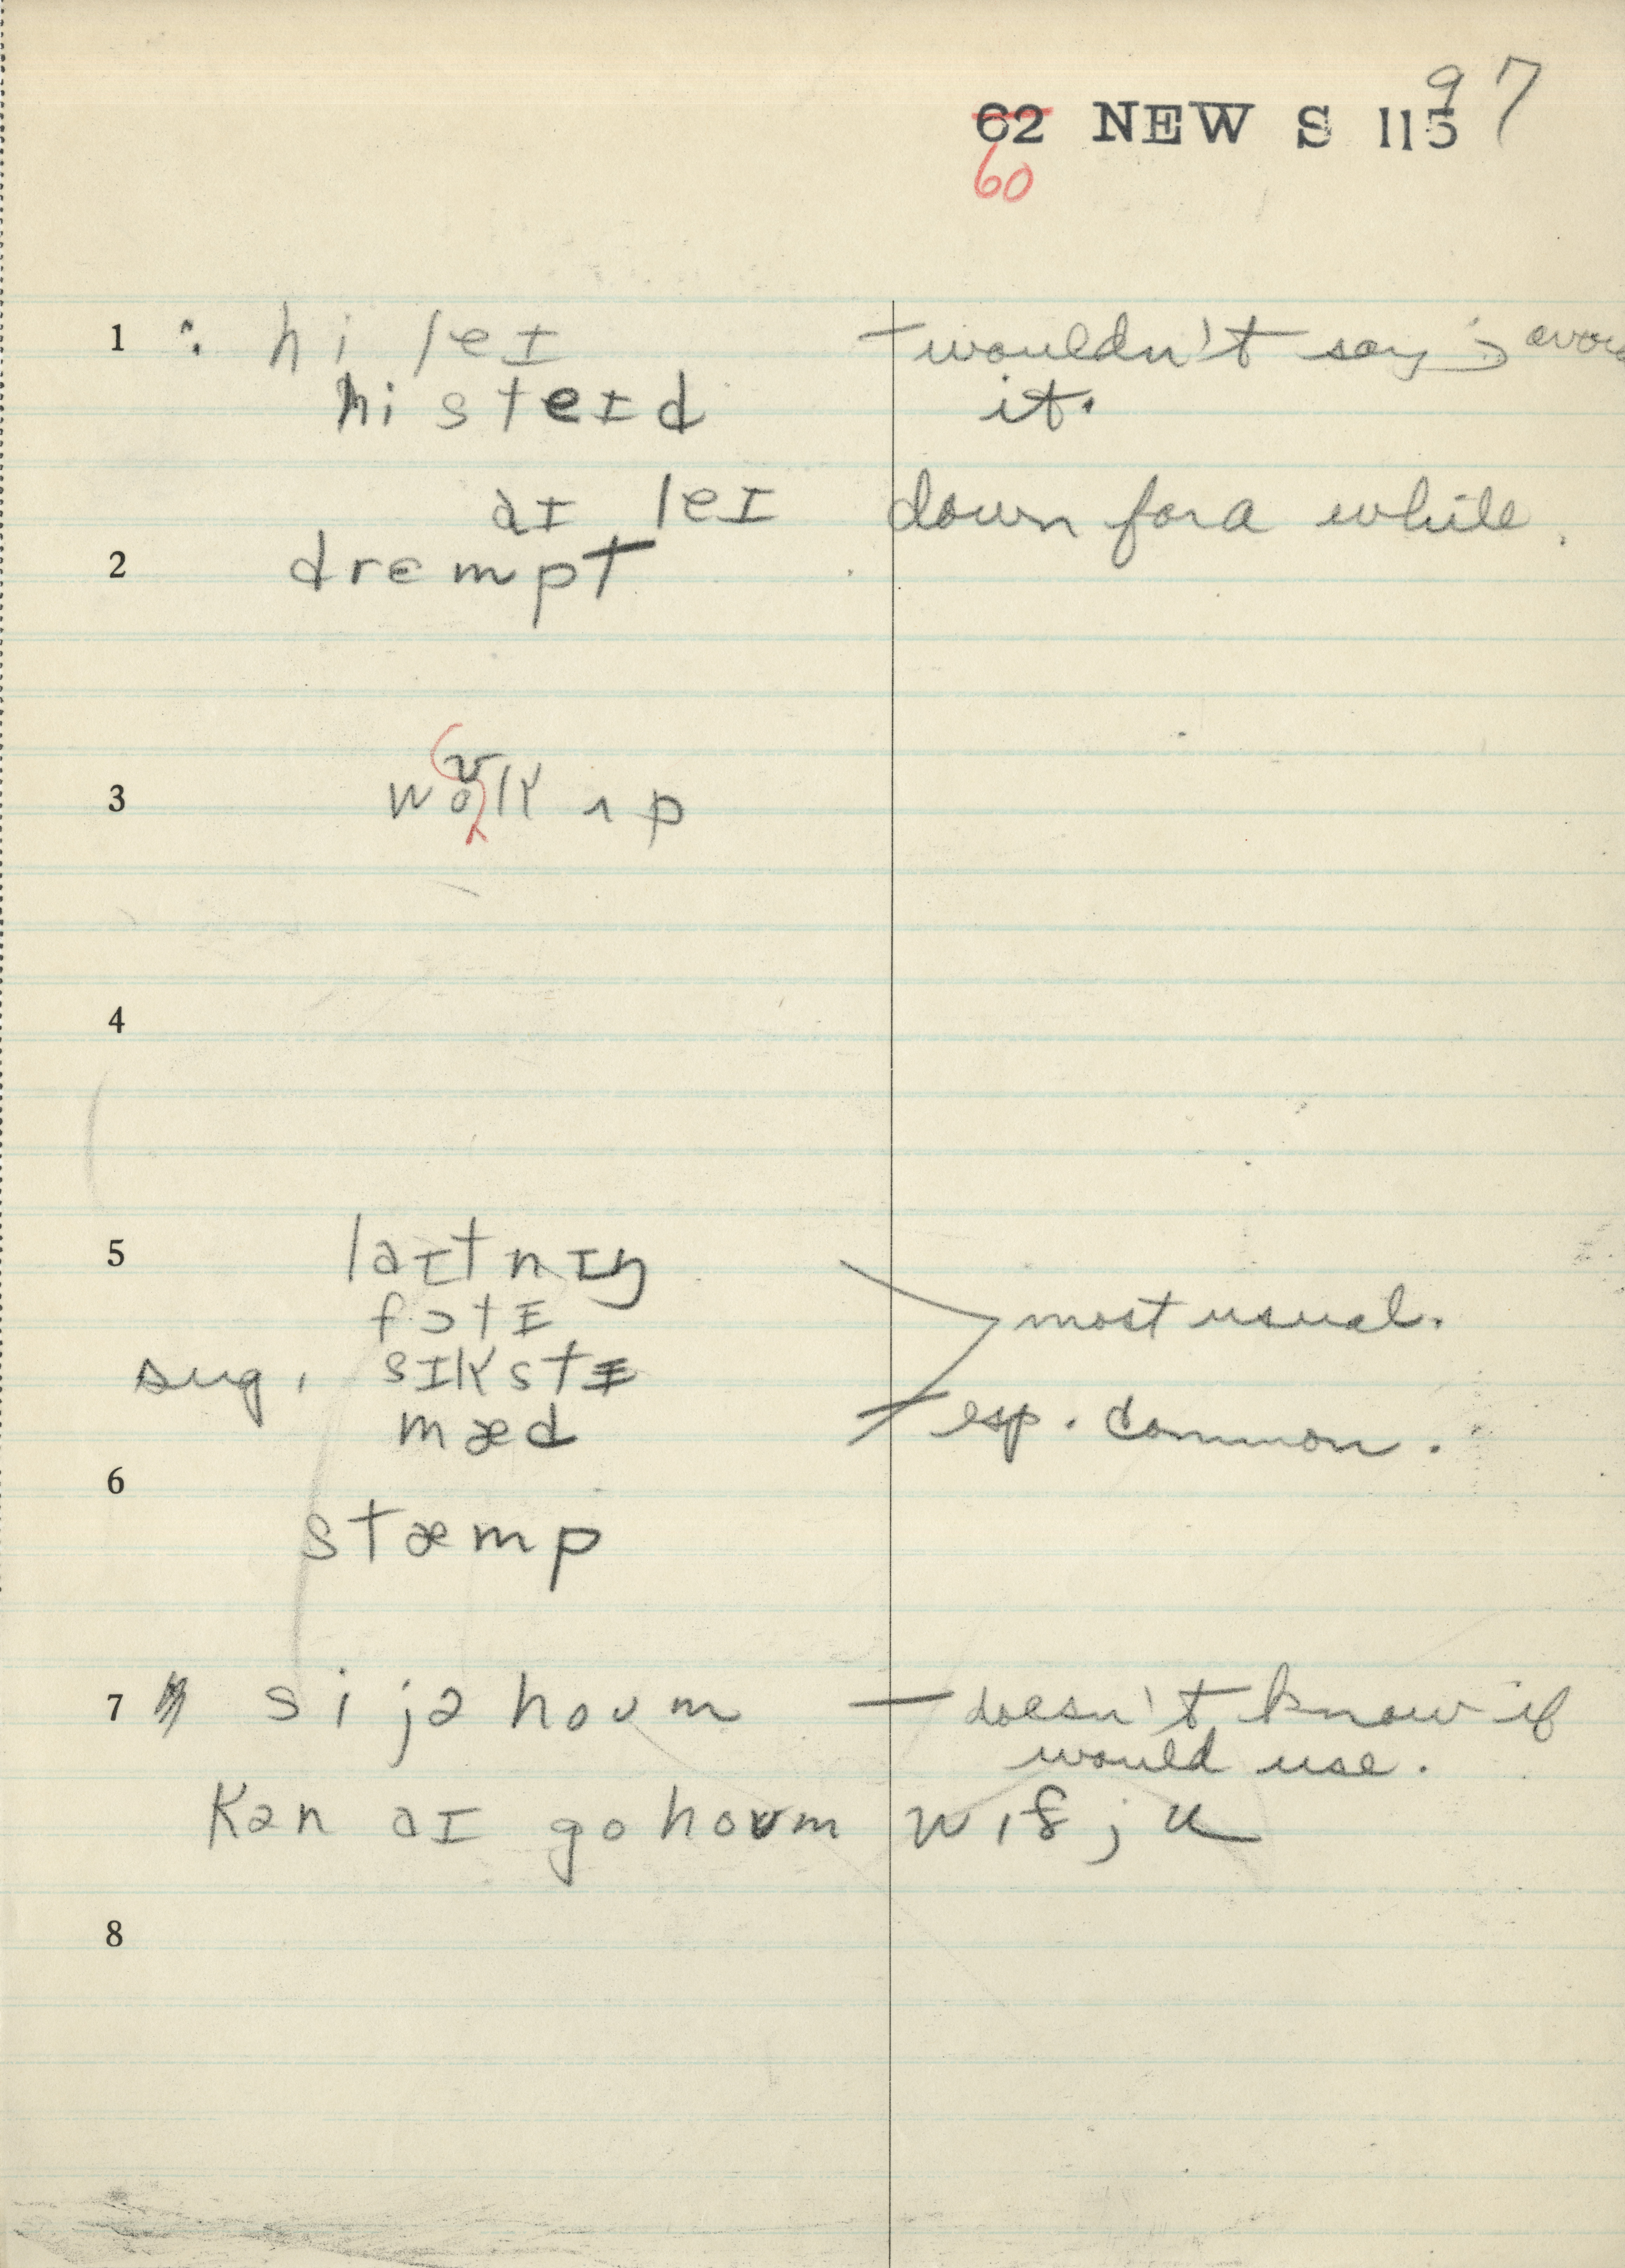 97
62 NEW S 115
60
1 : hi leɪ — wouldn't say; avoid
hi steɪd it.
aɪ leɪ down for a while.
2 drɛmpt
3 woʊk ʌp
4
5 laɪtnɪŋ
fɔtɪ most usual.
sug. sɪkstɪ
mæd esp. common.
6
stæmp
7 si jə houm — doesn't know if
would use.
kən aɪ go houm wɪð ju
8